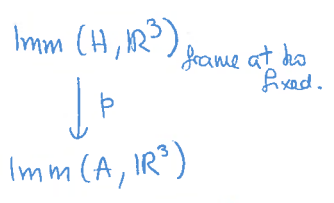 Imm (H, ℝ³) frame at h₀
fixed.
p
Imm (A, ℝ³)